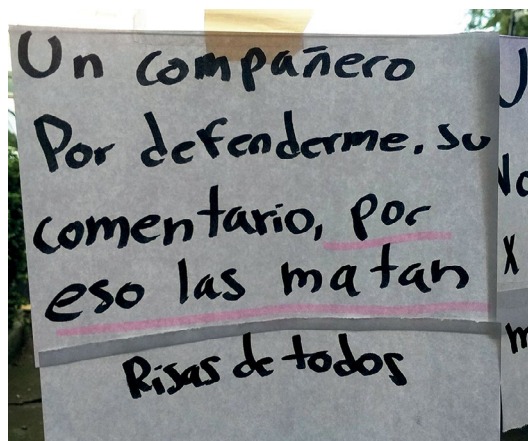 Un compañero
Por defenderme. su
comentario, por
eso las matan
Risas de todos